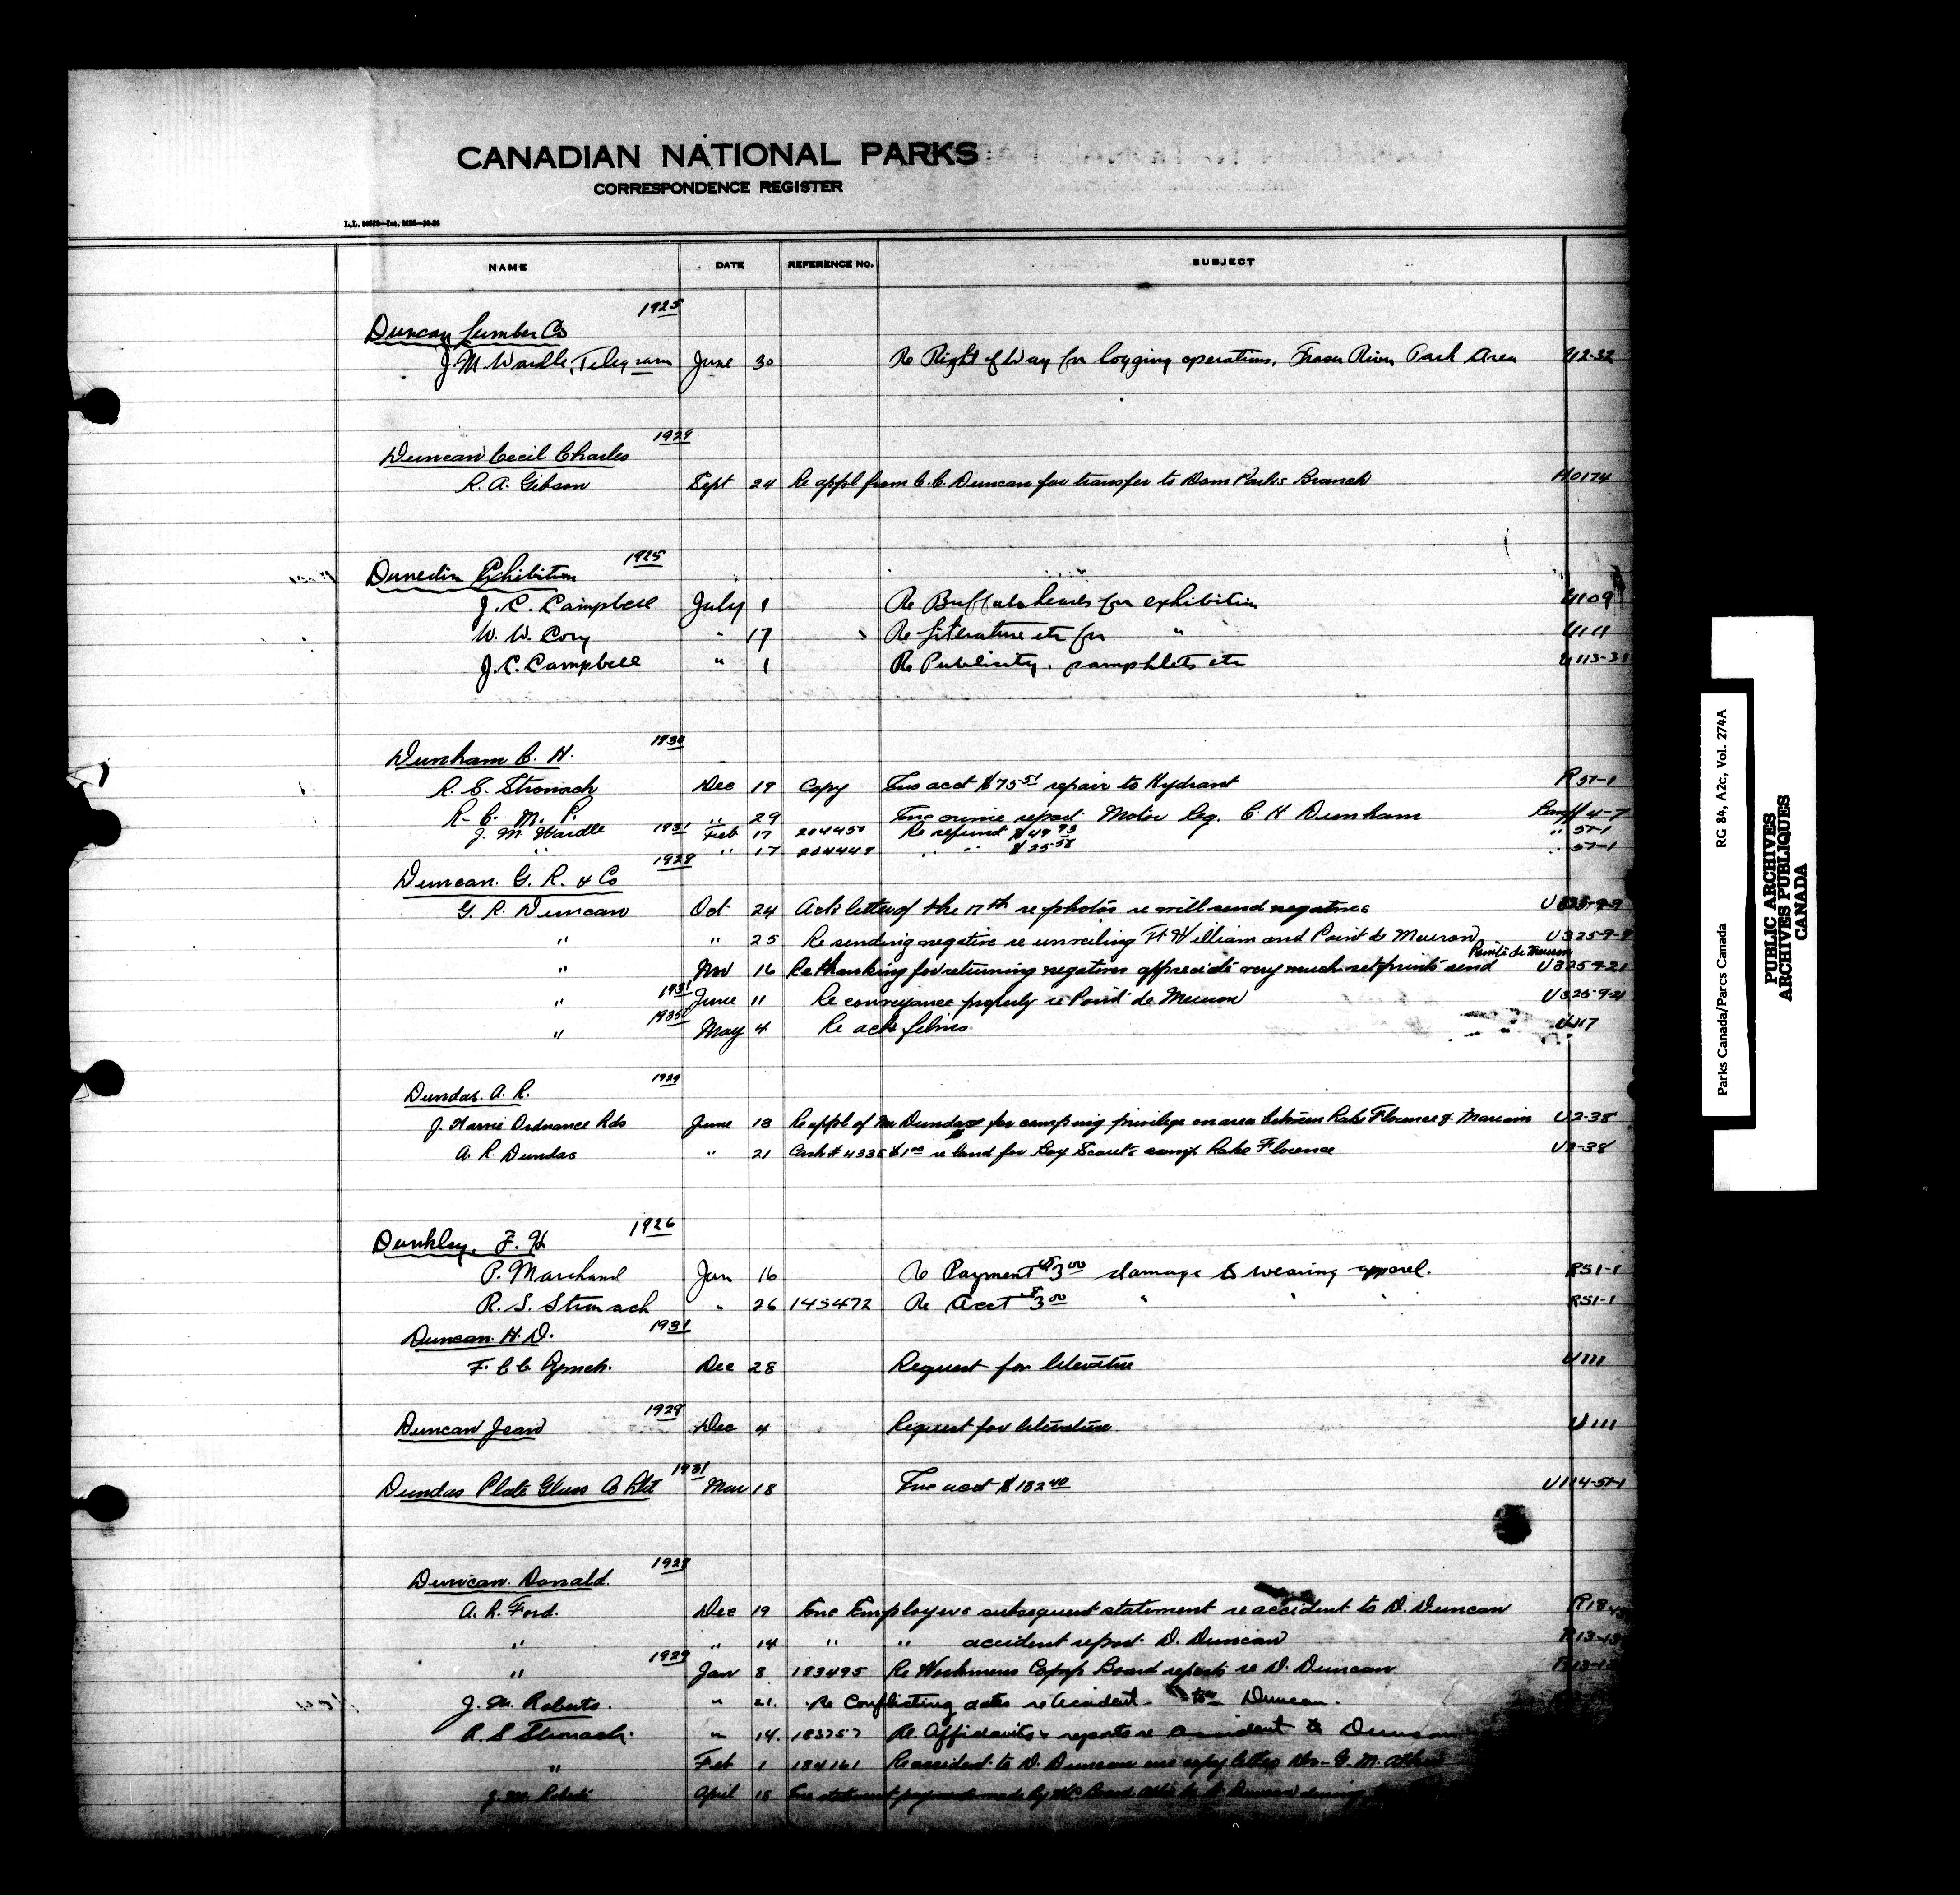 CANADIAN NATIONAL PARKS
CORRESPONDENCE REGISTER
NAME DATE REFERENCE NO. SUBJECT
1925
Duncan Lumber Co
J M Wardle, Telegram June 30 Re Right of Way for logging operations, Fraser River Park Area U2-32
1929
Duncan Cecil Charles
R. A. Gibson Sept 24 Re appl from C. C. Duncan for transfer to Dom Parks Branch H0174
1925
Dunedin Exhibition
J. C. Campbell July 1 Re Buffalo heads for exhibition U109
W. W. Cory " 17 Re Literature etc for " U111
J. C. Campbell " 1 Re Publicity, pamphlets etc U113-
1930
Dunham C. H.
R. S. Stronach Dec 19 Copy Enc acct $75 51 repair to Hydrant R 57-1
R. C. M. P. " 29 Enc crime report Motor Reg. C. H Dunham Banff 4-7
J. M. Wardle 1931 Feb 17 204450 Re refund $49 93 " 57-1
" " 17 204449 " " $25 58 " 57-1
1928
Duncan. G. R. & Co
G. R. Duncan Oct 24 Ack letter of the 17th re photos re will send negatives
" " 25 Re sending negative re unveiling Ft William and Point de Meuron U325-9-9
Pointe de Meuron
" Nov 16 Re thanking for returning negatives appreciate very much set prints send U325-9-21
" 1931 June 11 Re conveyance property re Point de Meuron U325-9-21
" 1935 May 4 Re ack films U117
1929
Dundas. A. R.
J. Harris Ordnance Rds June 18 Re appl of Mr Dundas for camping privilege on area between Lake Florence & U2-38
A. R. Dundas " 21 Cash # 4335 $1 00 re land for Boy Scouts camp Lake Florence U2-38
1926
Dunkley, F. H
P. Marchand Jan 16 Re Payment $3 00 damage to wearing apparel. R51-1
R. S. Stronach " 26 145472 Re Acct $3 00 " " " R51-1
Duncan. H. D. 1931
F. C. C. Lynch. Dec 28 Request for literature U111
Duncan Jean 1929 Dec 4 Request for literature. U111
Dundas Plate Glass Co Ltd 1931 Mar 18 Enc acct $182 40 U114-51-1
1928
Duncan. Donald.
A. R. Ford. Dec 19 Enc Employers subsequent statement re accident to D. Duncan
" " 14 " " accident report D. Duncan
" 1929 Jan 8 183495 Re Workmens Comp Board reports re D. Duncan
J. M. Roberts. " 21. Re Conflicting dates re Accident to Duncan.
R. S Stronach. " 14. 183757 Re. Affidavits & reports re accident to Duncan
" Feb 1 184161 Re accident to D. Duncan enc copy letter Dr. G. M.
J. M. Roberts April 18 Enc statement payments made by
RG 84, A2c, Vol. 274A
Parks Canada/Parcs Canada
PUBLIC ARCHIVES
ARCHIVES PUBLIQUES
CANADA